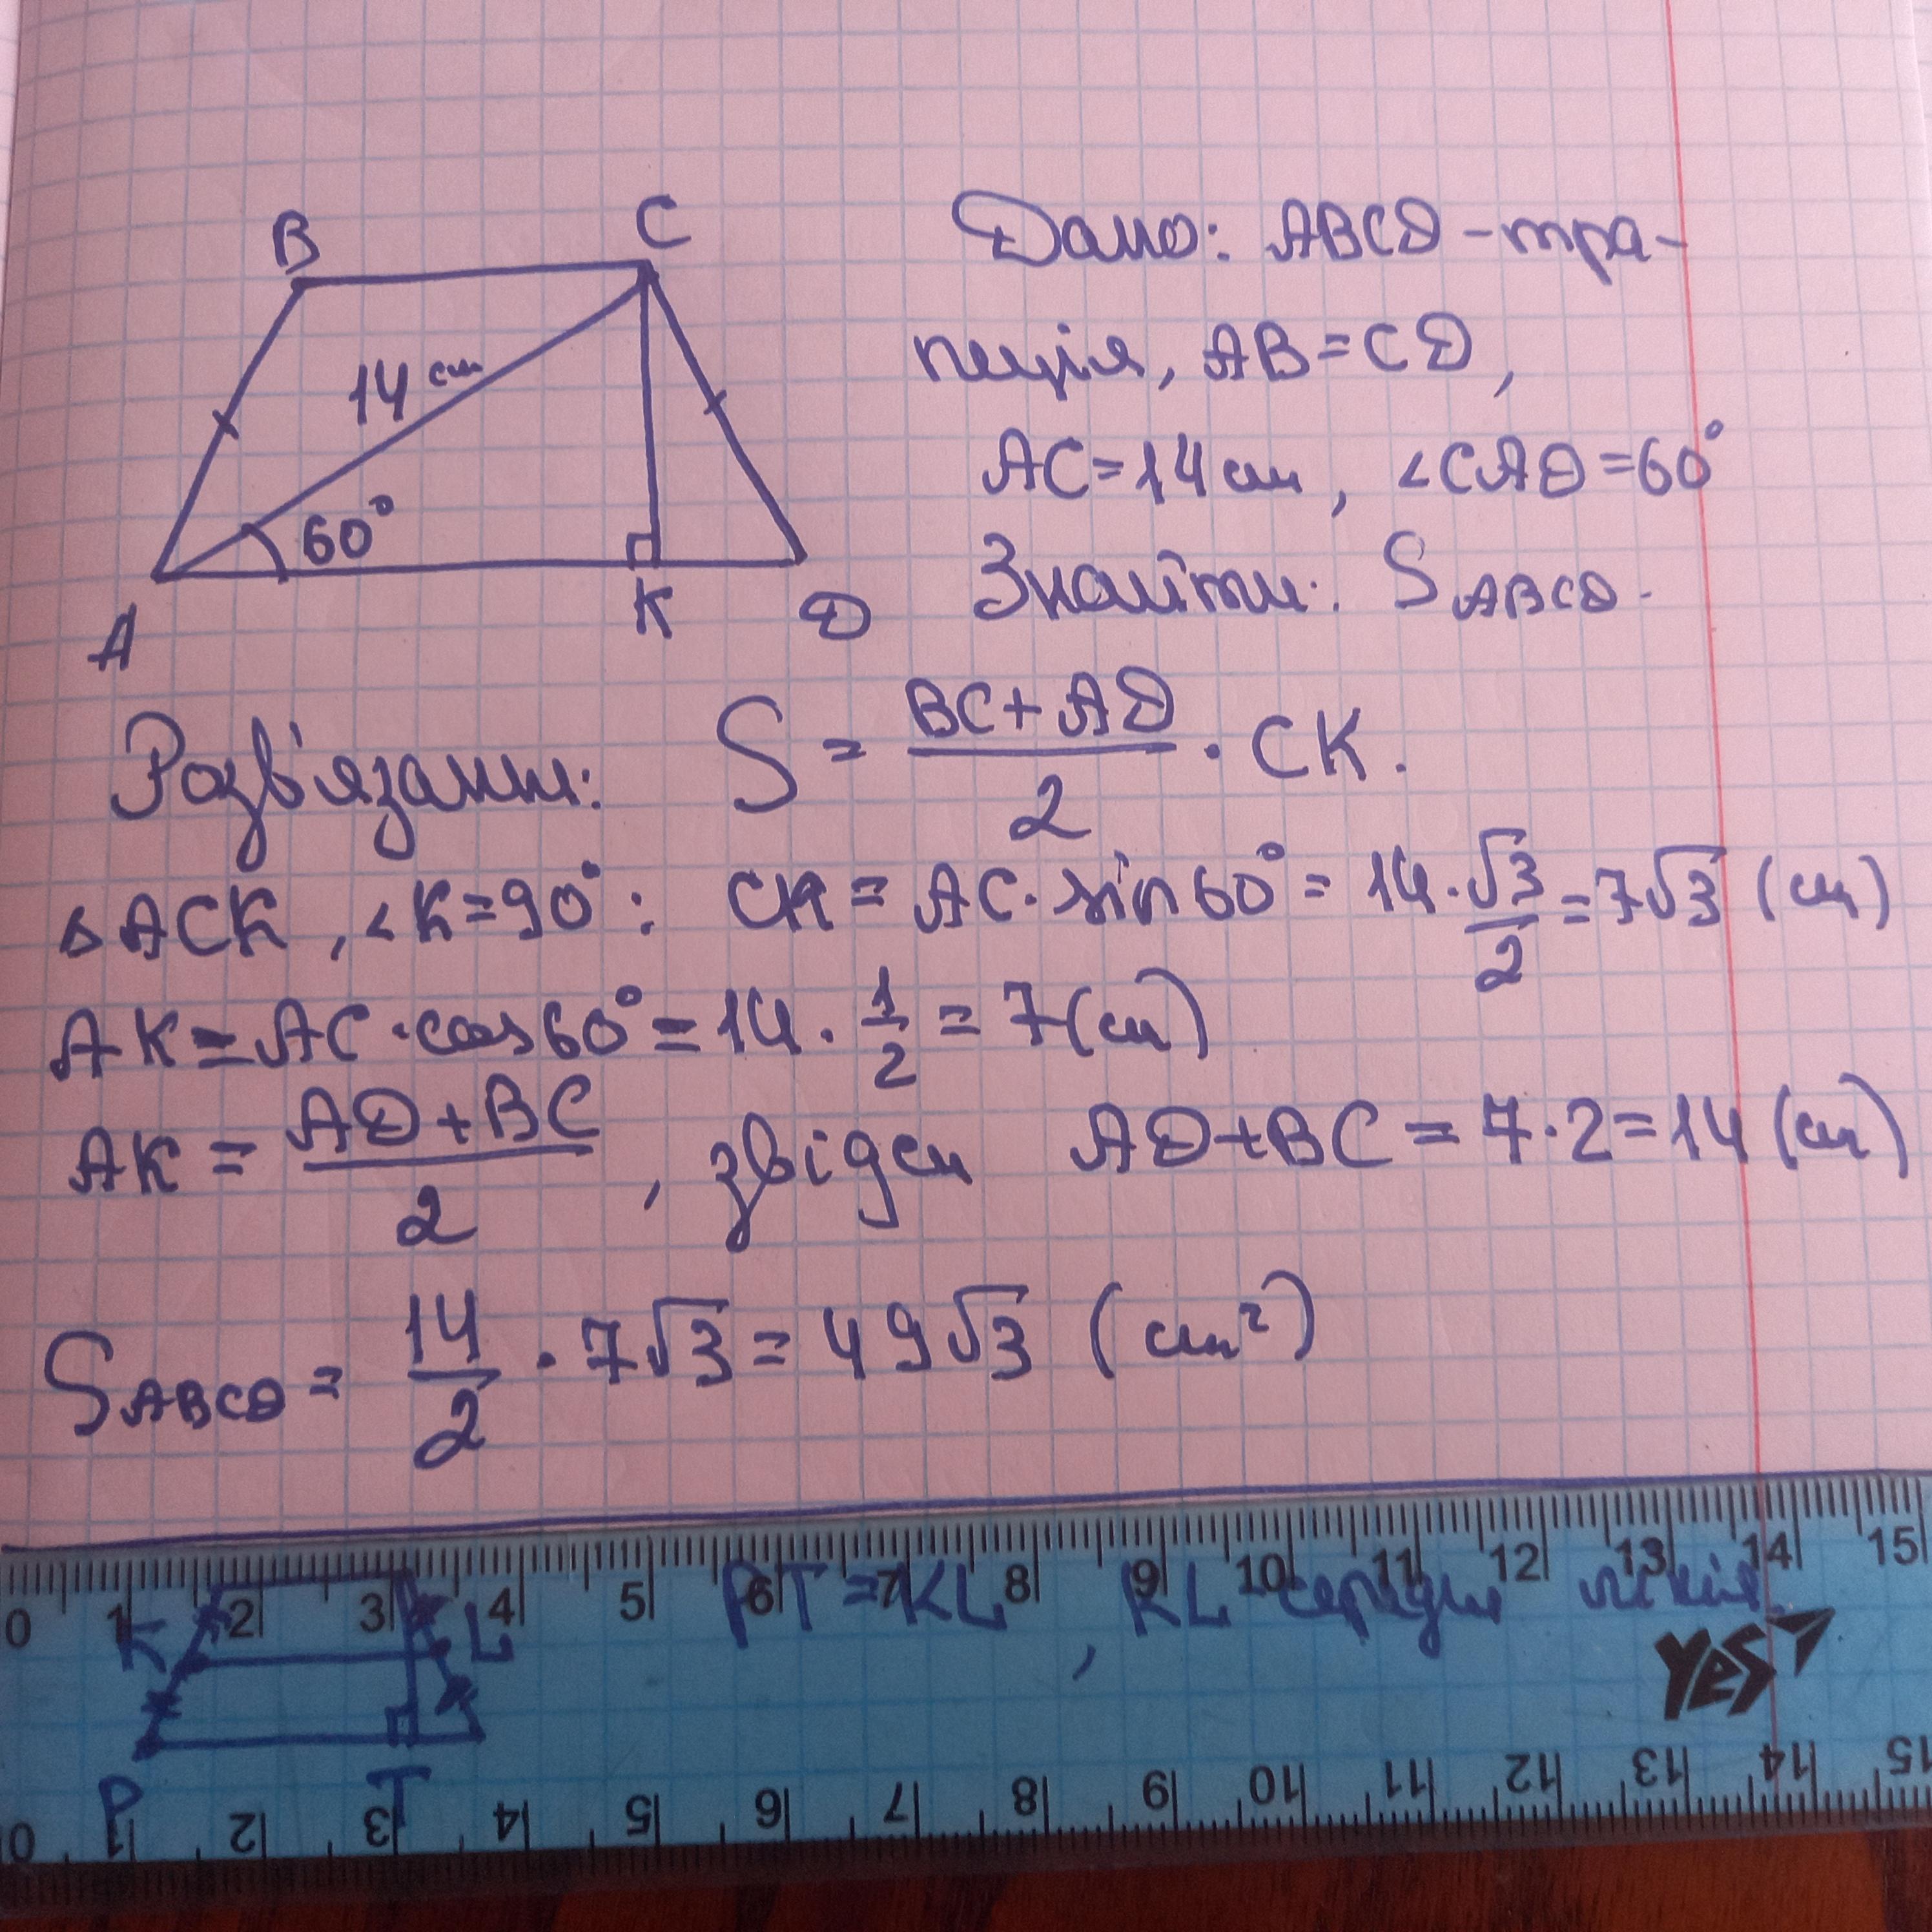 B C
14 см
60°
A K D
Дано: ABCD - тра-
пеція, AB = CD,
AC = 14 см, ∠CAD = 60°
Знайти: S ABCD.
Розв'язання: S = (BC + AD)/2 · CK.
△ACK, ∠K = 90°: CK = AC · sin 60° = 14 · √3/2 = 7√3 (см)
AK = AC · cos 60° = 14 · 1/2 = 7 (см)
AK = (AD + BC)/2, звідси AD + BC = 7 · 2 = 14 (см)
S ABCD = 14/2 · 7√3 = 49√3 (см²)
0 1 2 3 4 5 6 7 8 9 10 11 12 13 14 15
K L PT = KL, KL - середня лінія
YES
P T
0 1 2 3 4 5 6 7 8 9 10 11 12 13 14 15